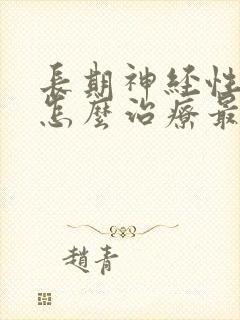 長期神经性
怎麼治療最
趙青